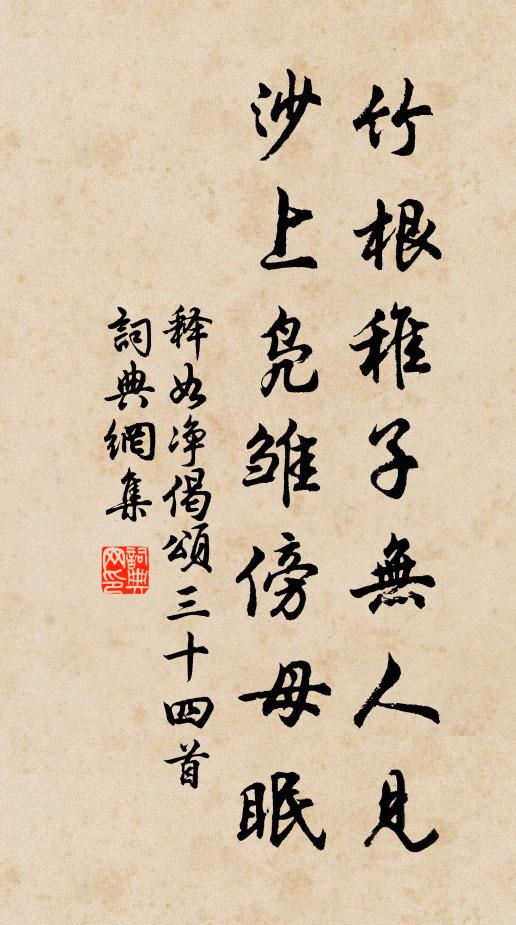 竹根稚子無人見
沙上凫雛傍母眠
释如净偈頌三十四首
詞典網集
詞典網印